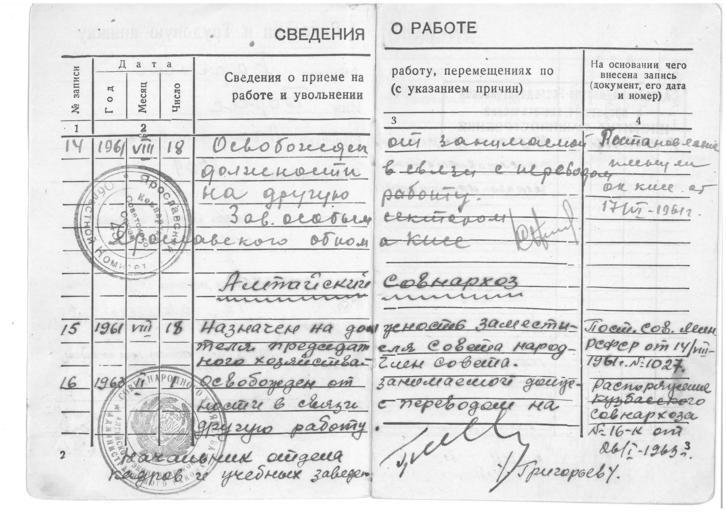 СВЕДЕНИЯ О РАБОТЕ
№ записи
Дата
Год
Месяц
Число
Сведения о приеме на
работе и увольнении
работу, перемещениях по
(с указанием причин)
На основании чего
внесена запись
(документ, его дата
и номер)
1 2 3 4
14 1961 VIII 18 Освобожден от занимаемой Постановление
должности в связи с переводом пленума
на другую работу. ОК КПСС от
Зав. особым сектором 17/VI-1961г.
Ярославского обкома КПСС
Ярославский
Областной Комитет
Алтайский Совнархоз
15 1961 VIII 18 Назначен на должность заместителя Пост. Сов. Мин
председателя Совета народ- РСФСР от 14/VIII-
ного хозяйства - Член совета. 1961г. №1027.
16 1963 Освобожден от занимаемой долж- Распоряжение
ности в связи с переводом на Кузбасского
другую работу совнархоза
№16-К от
26/I-1963г.
2
Начальник отдела
кадров и учебных заведен. /Григорьев/.